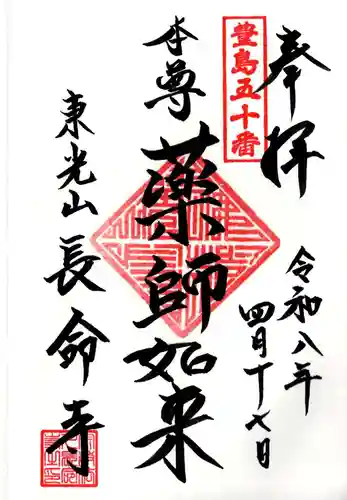 奉拝
豊島五十番
令和八年
四月十七日
本尊
薬師如来
東光山
長命寺